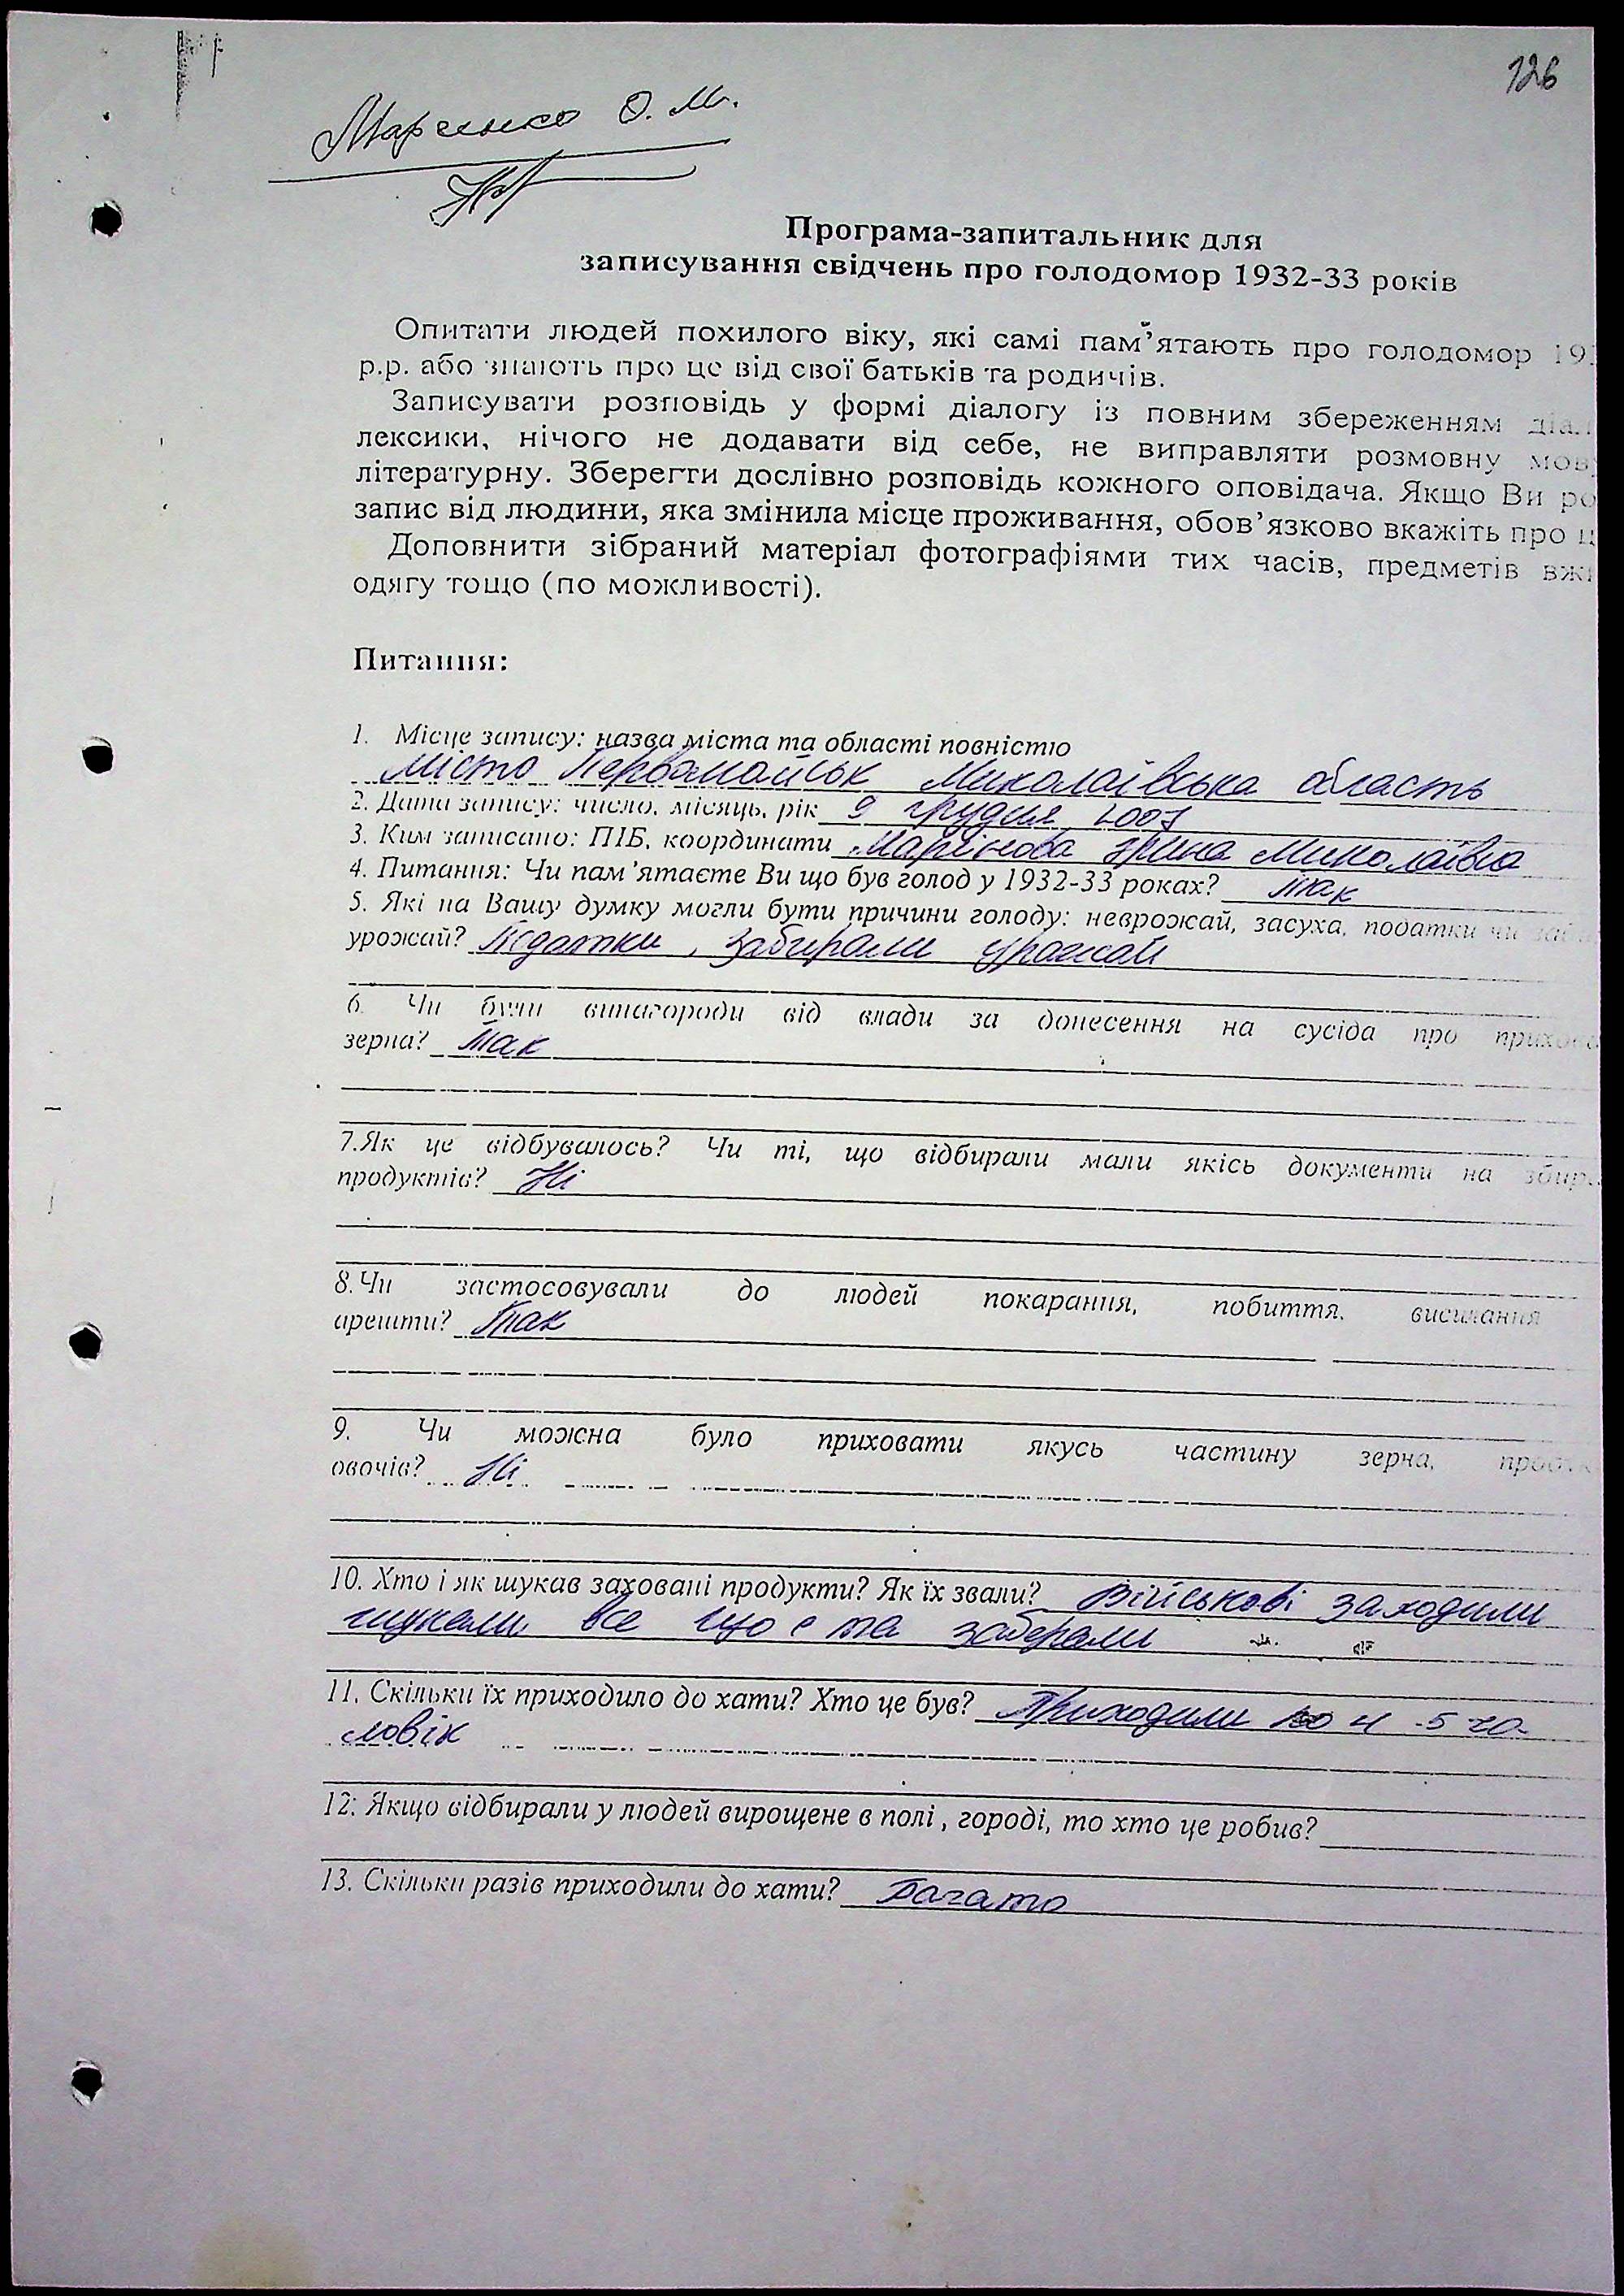 126
Марченко О. М.
Програма-запитальник для
записування свідчень про голодомор 1932-33 років
Опитати людей похилого віку, які самі пам’ятають про голодомор 193
р.р. або знають про це від свої батьків та родичів.
Записувати розповідь у формі діалогу із повним збереженням діал
лексики, нічого не додавати від себе, не виправляти розмовну мову
літературну. Зберегти дослівно розповідь кожного оповідача. Якщо Ви ро
запис від людини, яка змінила місце проживання, обов’язково вкажіть про ц
Доповнити зібраний матеріал фотографіями тих часів, предметів вжи
одягу тощо (по можливості).
Питання:
1. Місце запису: назва міста та області повністю
місто Первомайськ Миколаївська область
2. Дата запису: число, місяць, рік 9 грудня 2007
3. Ким записано: ПІБ, координати Марінова Ірина Миколаївна
4. Питання: Чи пам’ятаєте Ви що був голод у 1932-33 роках? так
5. Які на Вашу думку могли бути причини голоду: неврожай, засуха, податки чи
урожай? Податки, забирали урожай
6. Чи були винагороди від влади за донесення на сусіда про прихова
зерна? Так
7.Як це відбувалось? Чи ті, що відбирали мали якісь документи на збира
продуктів? Ні
8.Чи застосовували до людей покарання, побиття, висилання
арешти? Так
9. Чи можна було приховати якусь частину зерна, проду
овочів? Ні
10. Хто і як шукав заховані продукти? Як їх звали? Військові заходили
шукали все що є та заберали
11. Скільки їх приходило до хати? Хто це був? Приходили по 4-5 чо-
ловік
12. Якщо відбирали у людей вирощене в полі , городі, то хто це робив?
13. Скільки разів приходили до хати? Багато